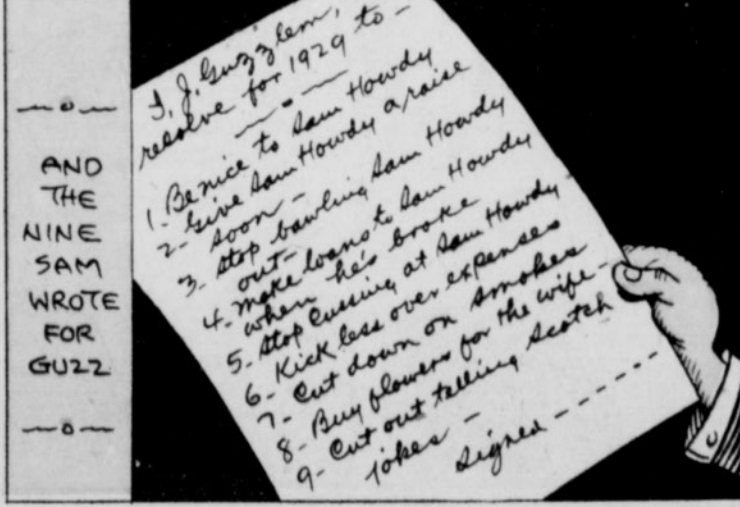 AND
THE
NINE
SAM
WROTE
FOR
GUZZ
I, J. Guzzlem,
resolve for 1929 to -
1. Be nice to Sam Howdy
2- Give Sam Howdy a raise
soon -
3- Stop bawling Sam Howdy
out-
4- Make loans to Sam Howdy
when he's broke
5- Stop cussing at Sam Howdy
6- Kick less over expenses
7- Cut down on smokes
8- Buy flowers for the wife-
9- Cut out telling Scotch
jokes -
Signed - - - - - -